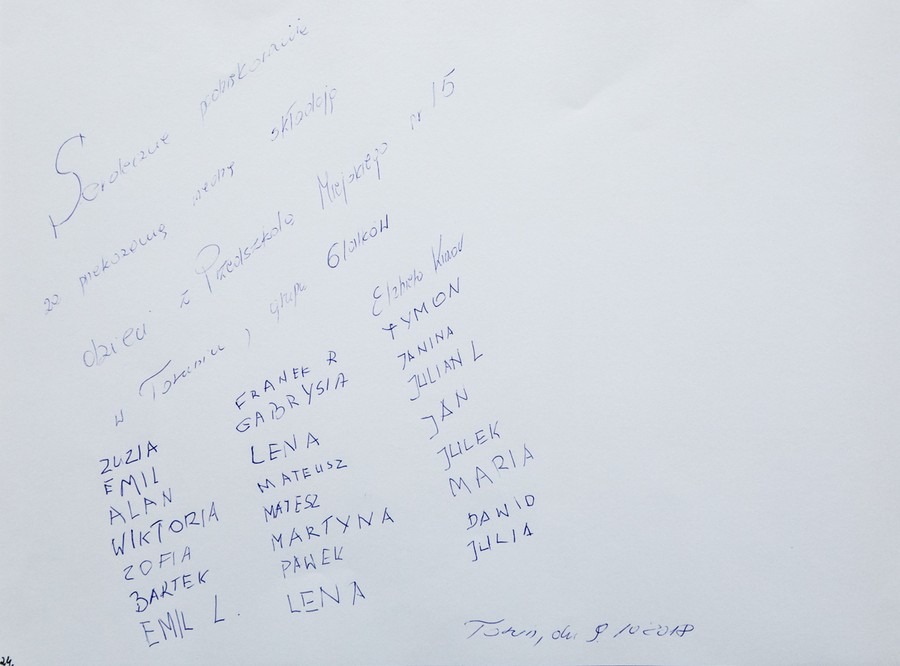 Serdeczne podziękowanie
za pokazową
składają
dzieci z Przedszkola Miejskiego nr 15
w Toruniu, grupa 6latków
Elżbieta
ZUZIA
EMIL
ALAN
WIKTORIA
ZOFIA
BARTEK
EMIL L.
FRANEK R
GABRYSIA
LENA
MATEUSZ
MATESZ
MARTYNA
PAWEK
LENA
TYMON
JANINA
JULIAN L
JAN
JULEK
MARIA
DAWID
JULIA
Toruń, dn. 9.10.2018
24.